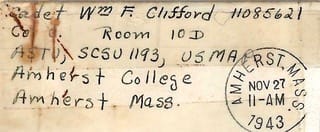 Cadet Wm F. Clifford 11085621
Co. Room 10D
ASTU, SCSU 1193, USMAP
Amherst College
Amherst Mass.
AMHERST, MASS.
NOV 27
11-AM
1943